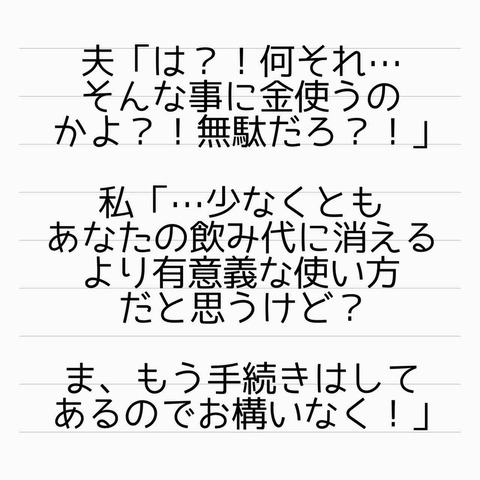 夫「は？！何それ…
そんな事に金使うの
かよ？！無駄だろ？！」
私「…少なくとも
あなたの飲み代に消える
より有意義な使い方
だと思うけど？
ま、もう手続きはして
あるのでお構いなく！」